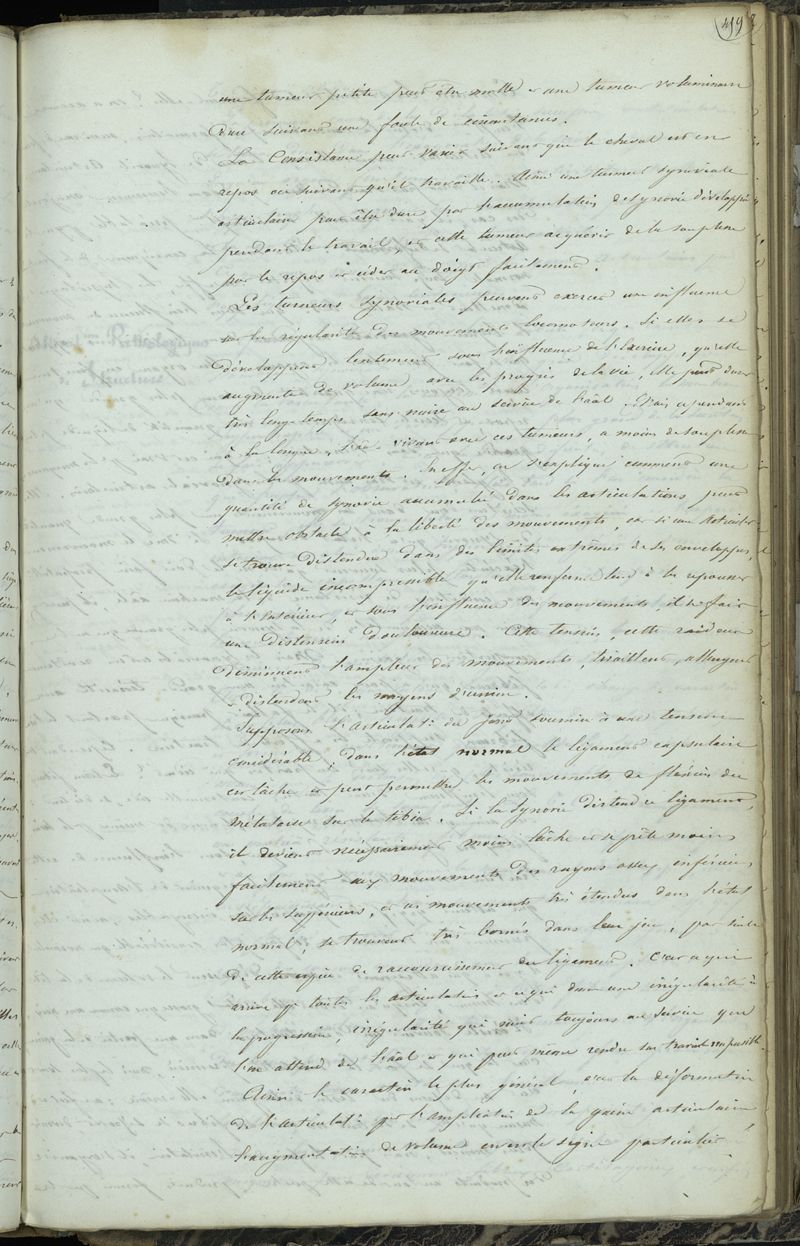 419
une tumeur petite peut être molle et une tumeur volumineuse
dure suivant une foule de circonstances.
La Consistance peut varier suivant que le cheval est en
repos ou suivant qu'il travaille. Ainsi une tumeur synoviale
articulaire peut être dure par l'accumulation de synovie développée
pendant le travail, et cette tumeur acquérir de la souplesse
par le repos et céder au doigt facilement.
Les tumeurs synoviales peuvent exercer une influence
sur la régularité des mouvements locomoteurs. Si elles se
développent lentement sous l'influence de l'exercice, qu'elle
augmente de volume avec les progrès de la vie, elle peut durer
très long-temps sans nuire au service de l'aâl. Mais cependant
à la longue, vivant avec ces tumeurs, a moins de souplesse
dans les mouvements. En effet, on s'explique comment une
quantité de synovie accumulée dans les articulations peut
mettre obstacle à la liberté des mouvements, car si une articulon
se trouve distendue dans des limites extrêmes de ses enveloppes,
le liquide incompressible qu'elle renferme tend à les repousser
à l'extérieur, et sous l'influence des mouvements il se fait
une distension douloureuse. Cette tension, cette raideur
diminuent l'ampleur des mouvements, tiraillent, allongent
et distendent les moyens d'union.
Supposons l'articulatn du jarret soumise à une tension
considérable; dans l'état normal le ligament capsulaire
est lâche et peut permettre les mouvements de flexion du
métatarse sur le tibia. Si la synovie distend ce ligament,
il devient nécessairement moins lâche et se prête moins
facilement aux mouvements des rayons osseux inférieurs
sur les supérieurs, et ces mouvements très étendus dans l'état
normal, se trouvent très bornés dans leur jeu, par suite
de cette espèce de raccourcissement du ligament. C'est ce qui
arrive pr toutes les articulations et ce qui donne une irrégularité à
la progression, irrégularité qui nuit toujours au service que
l'on attend de l'aâl et qui peut même rendre son travail impossible.
Ainsi le caractère le plus général c'est la déformation
de l'articulatn par l'ampliation de la gaine articulaire,
l'augmentation de volume en est le signe particulier.